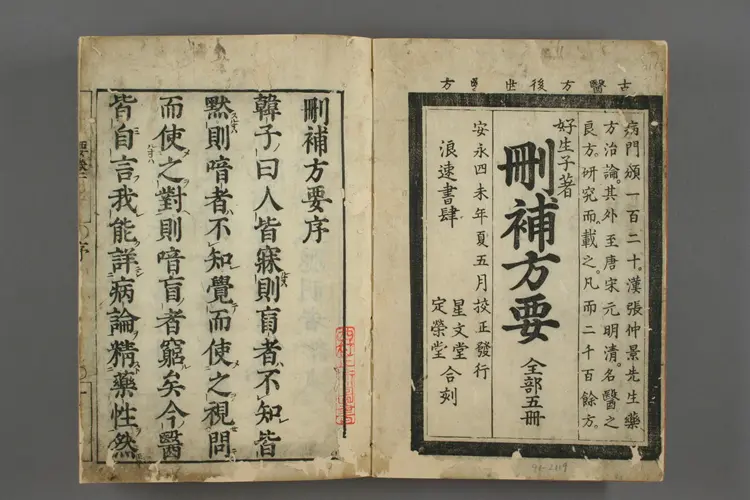 古醫方後世醫方
病門頒一百二十。漢張仲景先生藥
方治論。其外至唐宋元明清。名醫之
良方。研究而。載之。凡而二千百餘方。
好生子著
刪補方要
全部五冊
安永四未年夏五月 挍正發行
浪速書肆
星文堂
定榮堂
合刻
刪補方要序
韓子曰人皆寐則盲者不知皆
默則喑者不知覺而使之視問
而使之對則喑盲者窮矣今醫
皆自言我能詳病論精藥性然